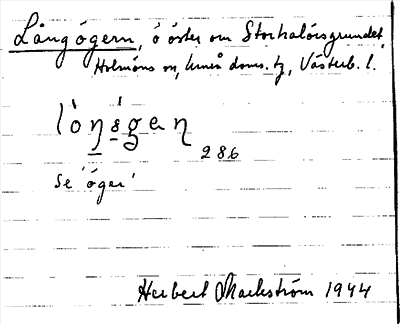 Långögern, ö öster om Storhalörsgrundet,
Holmöns sn, Umeå doms. tg, Västerb. l.
lòŋǿgen
286
Se 'öger'
Herbert Markström 1944